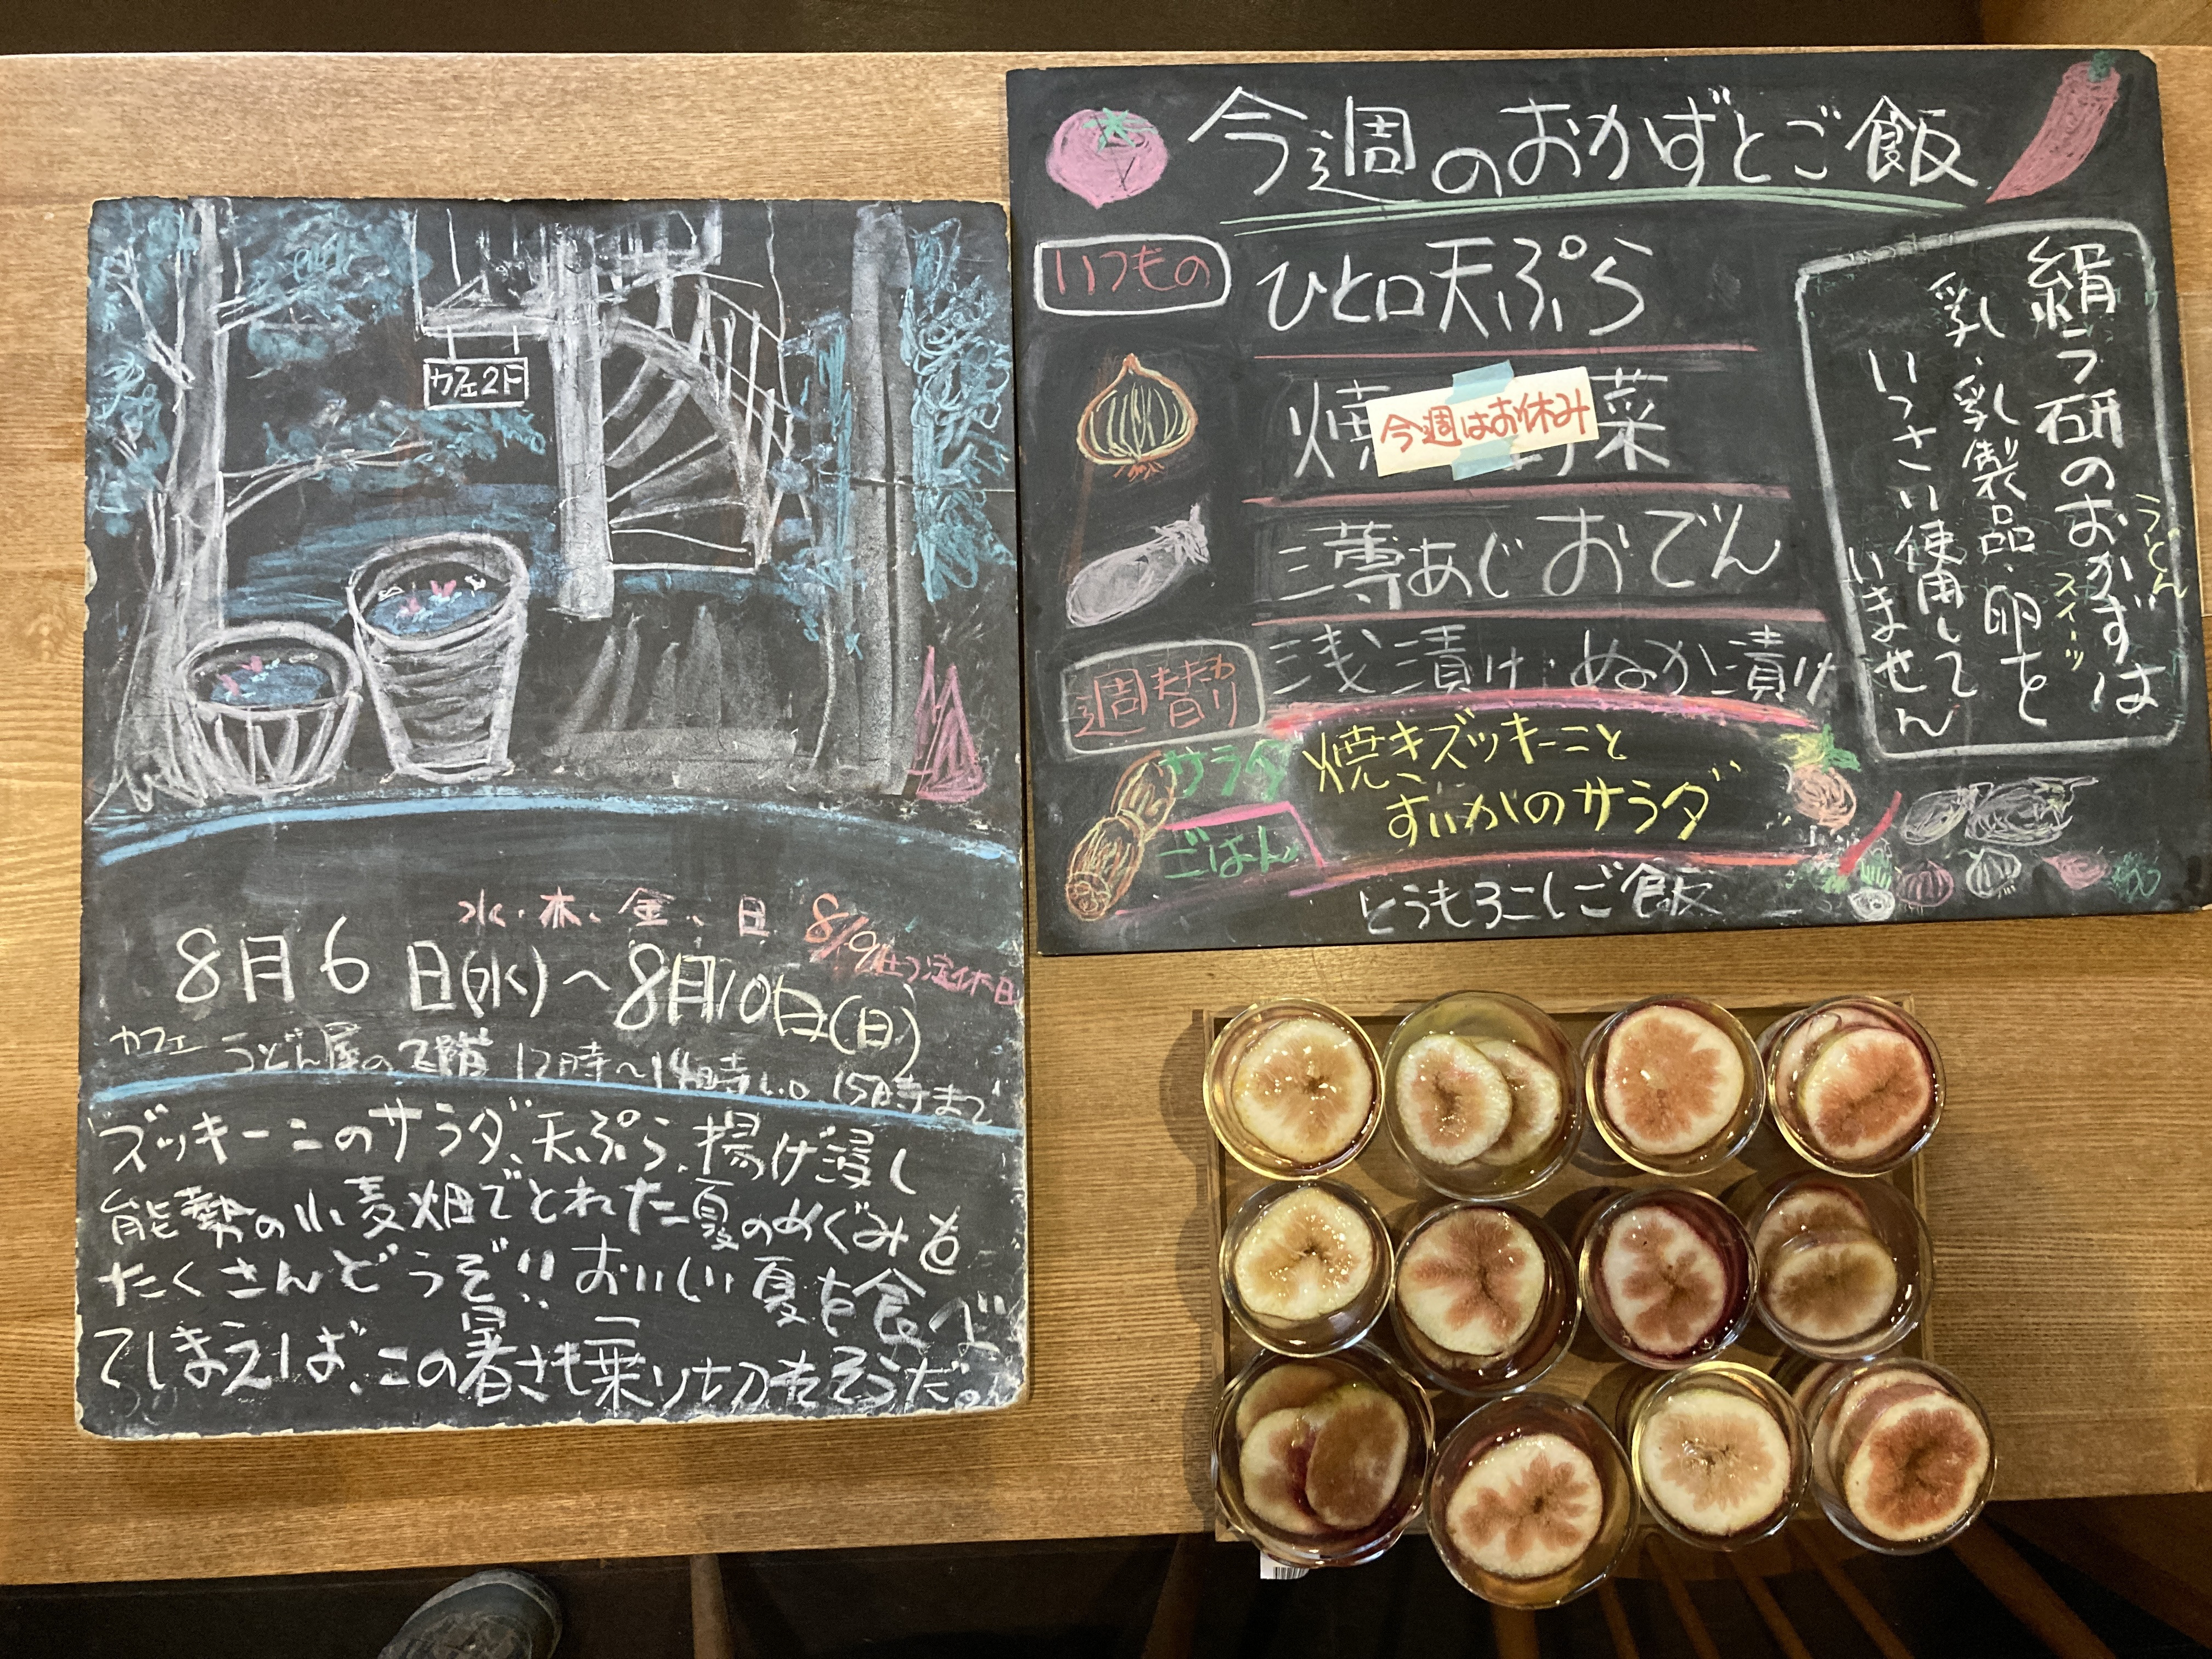 カフェ2F
水・木、金、日 8/9(土)定休日
8月6日(水)〜8月10日(日)
カフェ うどん屋の2階 12時〜14時L.O 15時まで
ズッキーニのサラダ、天ぷら、揚げ浸し
能勢の小麦畑でとれた夏のめぐみを
たくさんどうぞ!! おいしい夏を食べ
てしまえば、この暑さも乗り切れそうだ。
今週のおかずとご飯
いつもの
ひと口天ぷら
焼 菜
今週はお休み
薄あじおでん
浅漬け・ぬか漬け
週替り
かわ
サラダ
焼きズッキーニと
すいかのサラダ
ごはん
とうもろこしご飯
絹ラ研のおかずは
うどん
スイーツ
乳・乳製品・卵を
いっさい使用して
いません